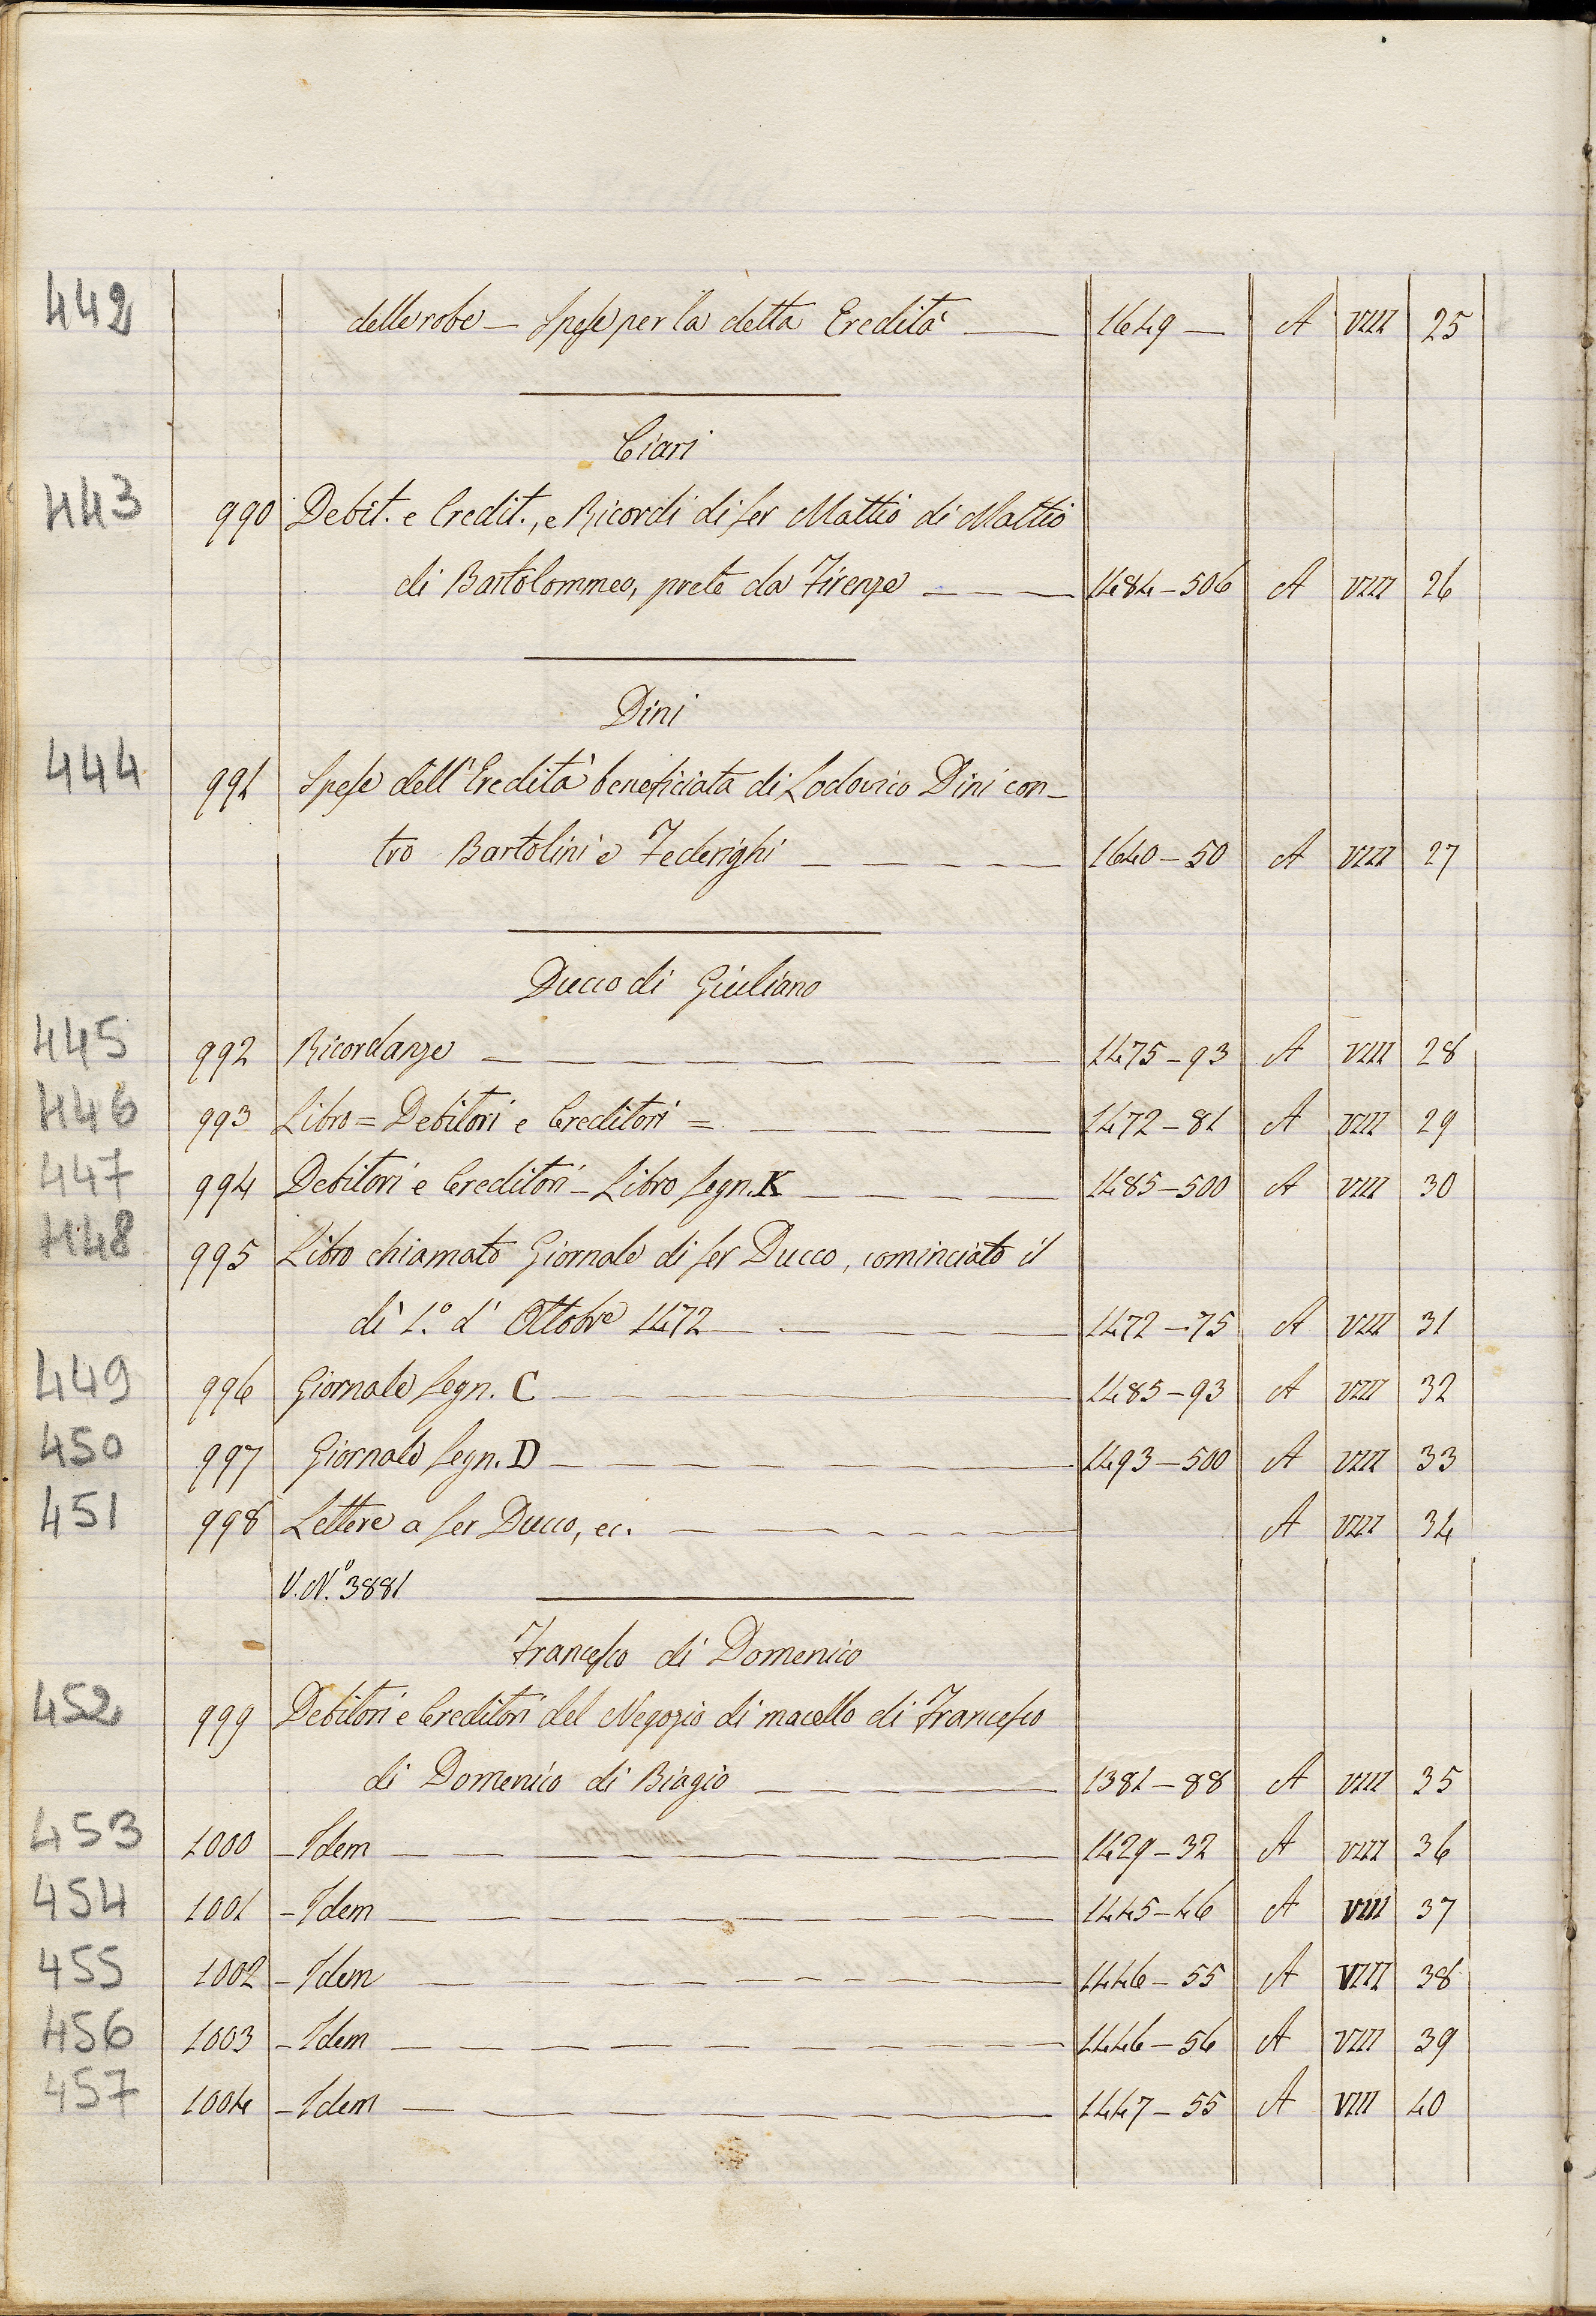 442 delle robe — Spese per la detta Eredità — 1649 — A VIII 25
Ciari
443 990 Debit. e Credit., e Ricordi di Ser Mattio di Mattio
di Bartolommeo, prete da Firenze — — — 1484–506 A VIII 26
Dini
444 991 Spese dell'Eredità beneficiata di Lodovico Dini con-
tro Bartolini e Federighi — — — — — 1640–50 A VIII 27
Ducco di Giuliano
445 992 Ricordanze — — — — — 1475–93 A VIII 28
446 993 Libro = Debitori e Creditori = — — — — 1472–81 A VIII 29
447 994 Debitori e Creditori – Libro Segn. K — — — — 1485–500 A VIII 30
448 995 Libro chiamato Giornale di Ser Ducco, cominciato il
dì 1.º d'Ottobre 1472 — — — — 1472–75 A VIII 31
449 996 Giornale Segn. C — — — — 1485–93 A VIII 32
450 997 Giornale Segn. D — — — — 1493–500 A VIII 33
451 998 Lettere a Ser Ducco, ec. — — — — A VIII 34
V. N.º 3881
Francesco di Domenico
452 999 Debitori e Creditori del Negozio di macello di Francesco
di Domenico di Biagio — — — — 1381–88 A VIII 35
453 1000 – Idem — — — — 1429–32 A VIII 36
454 1001 – Idem — — — — 1445–46 A VIII 37
455 1002 – Idem — — — — 1446–55 A VIII 38
456 1003 – Idem — — — — 1446–56 A VIII 39
457 1004 – Idem — — — — 1447–55 A VIII 40